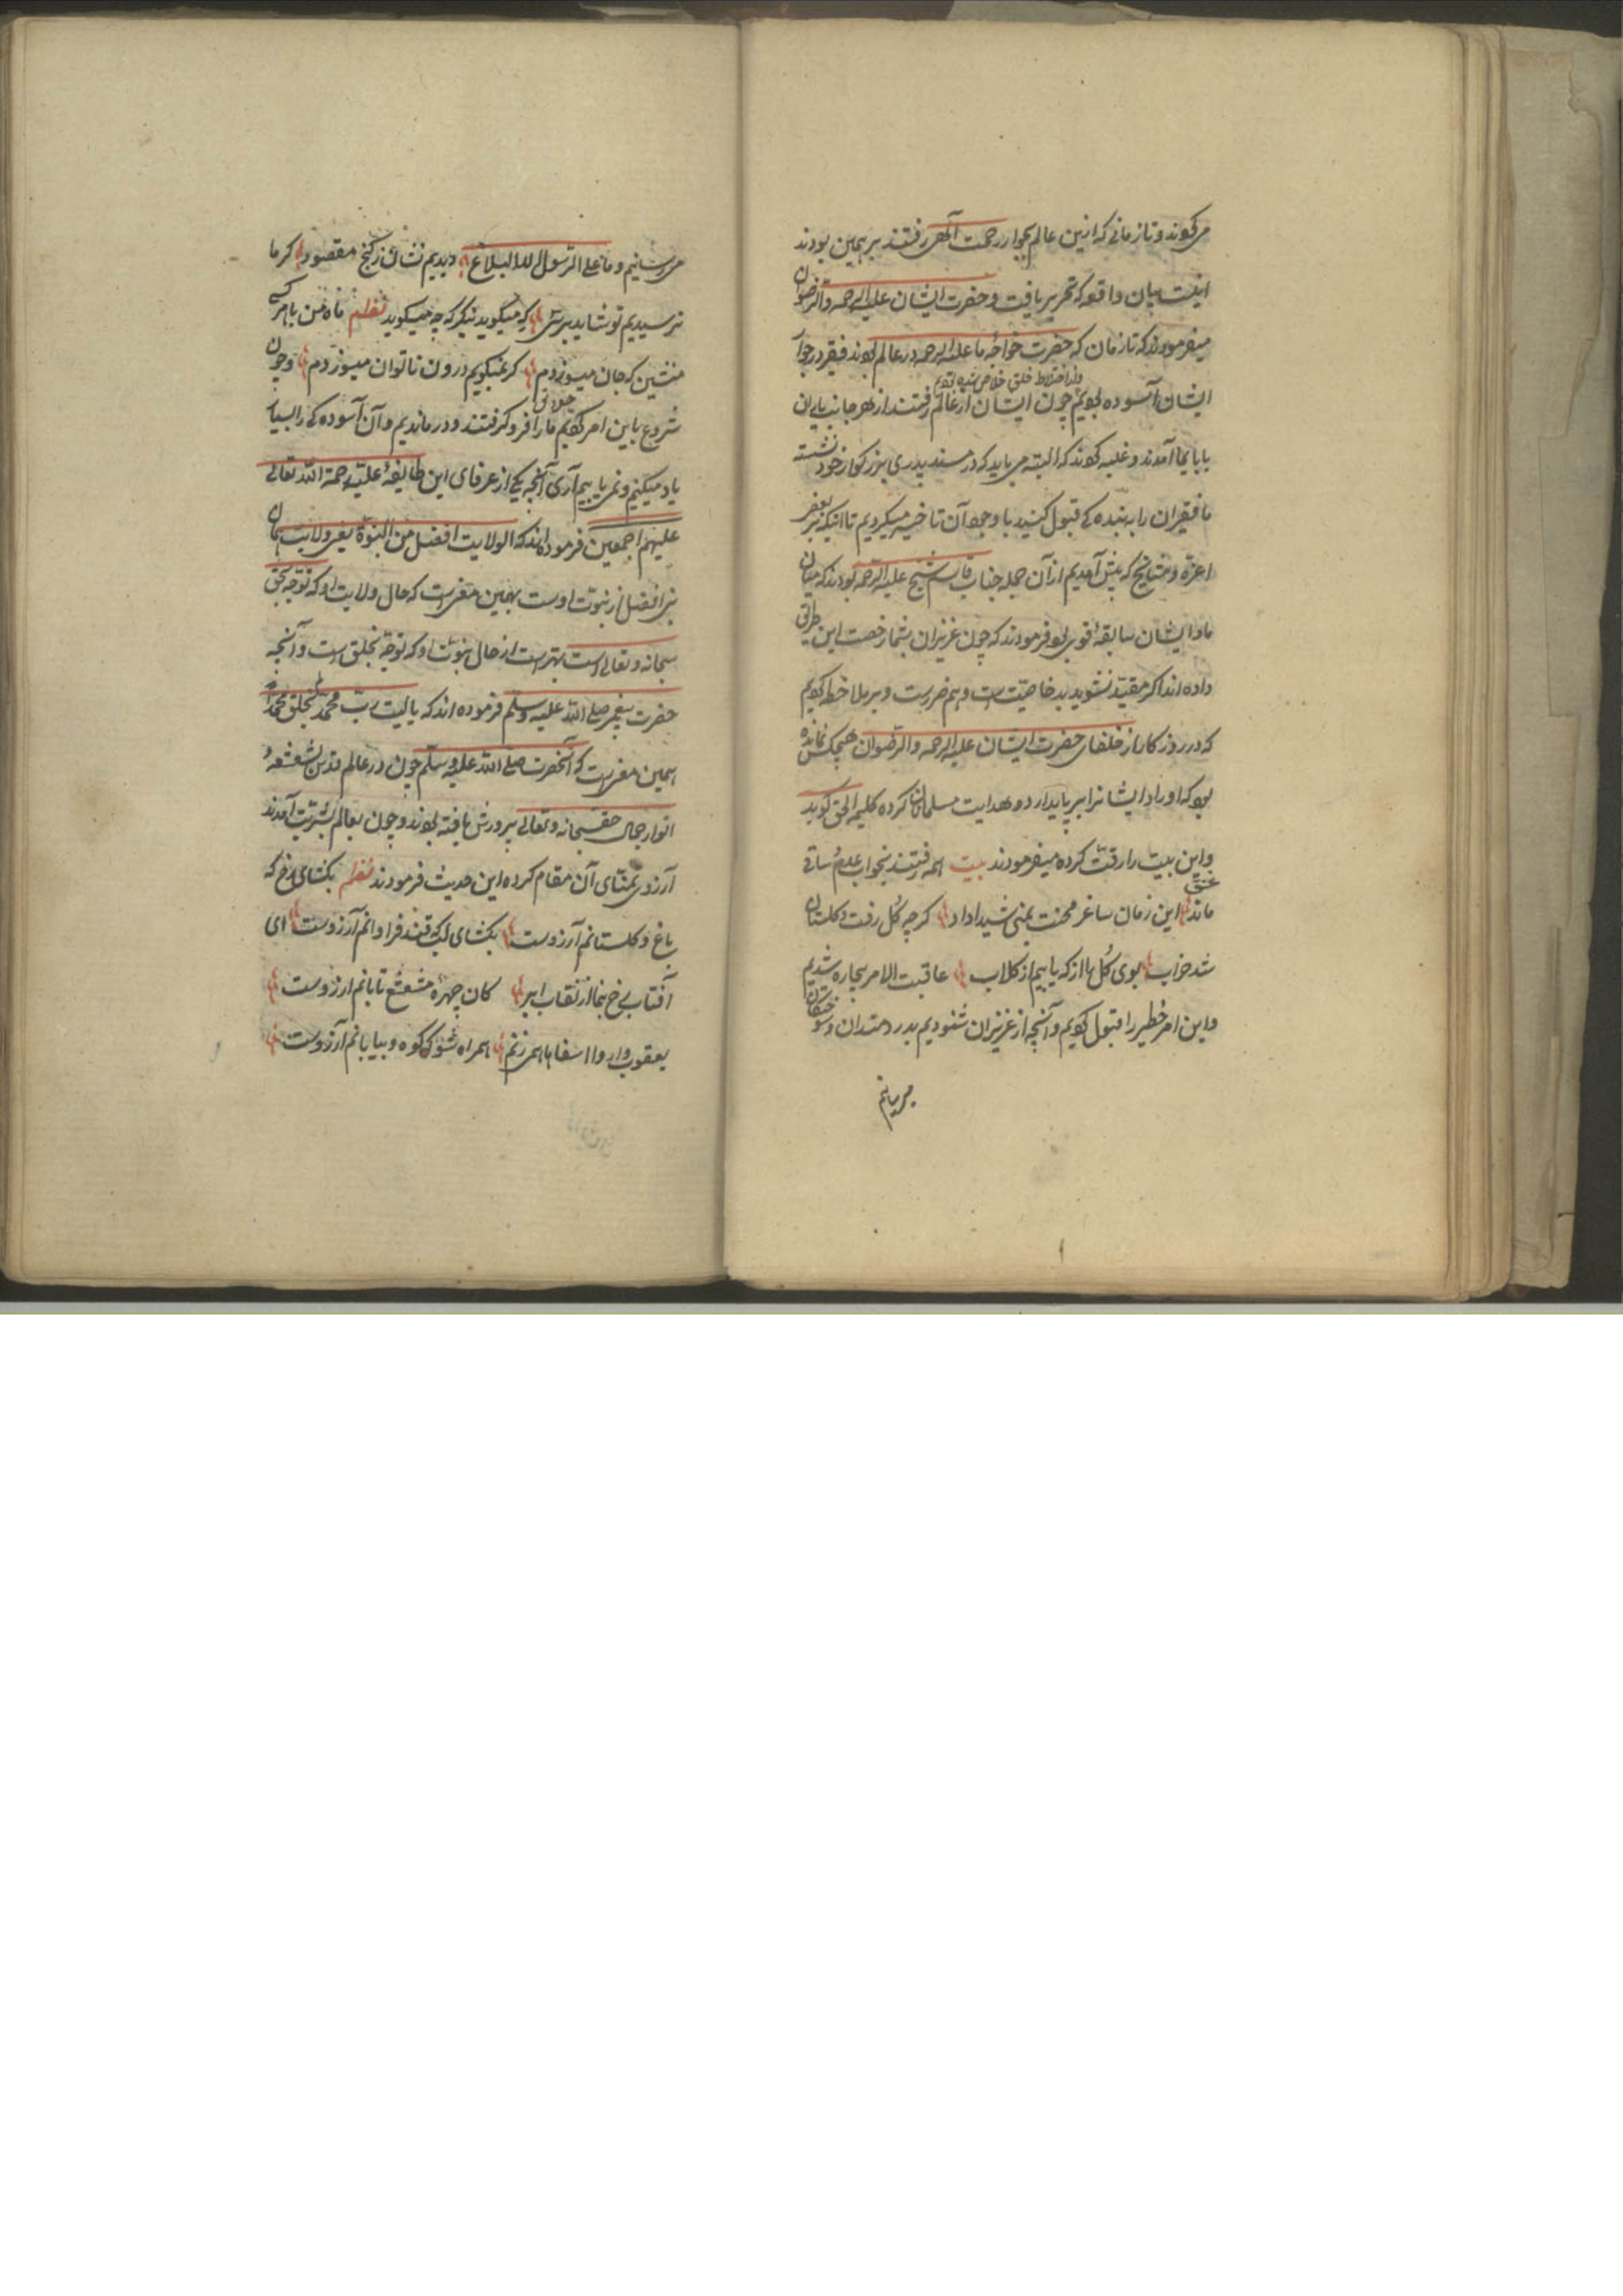 می کردند و تا زمانی که ازین عالم بجوار رحمت الهی رفتند بر همین بودند
اینست بیان واقعه که تحریر یافت و حضرت ایشان علیه الرحمه والرضوان
میفرمودند که تا زمان که حضرت خواجهٔ ما علیه الرحمه در عالم بودند فقیر در جوار
واز اختلاط خلق خلاص شده بودیم
ایشان آسوده بودیم چون ایشان از عالم رفتند از هر جانب یاران
با بایما آمدند و غلبه کردند که البته می باید که در مسند پدری بزرگوار خود نشسته
ما فقیران را به بنده کی قبول کنید با وجود آن تاخیر میکردیم تا اینکه بر بعضی
اعزه و مشایخ که پیش آمدیم از آن جمله جناب قاسم شیخ علیه الرحمه بودند که میان
ما و ایشان سابقهٔ قوی بود فرمودند که چون عزیزان بشما رخصت این طریق
داده اند اگر مقید نشوید بد خاصیت است و هم ضررست و بر ملا خطه کردیم
که در روزگار از خلفای حضرت ایشان علیه الرحمه والرضوان هیچکس نمانده
بود که اوراد ایشانرا بر پا دارد و هدایت مسلمانان کرده کلمه الحق گوید
و این بیت را رقت کرده میفرمودند بیت همه رفتند بخواب عدم ساقی عشق
ماند این زمان ساغر محنت بمنی شیدا داد گرچه گل رفت و گلستان
شد خراب بوی گل را از که یابیم از گلاب عاقبت الامر بیچاره شدیم
و این امر خطیر را قبول کردیم و آنچه از عزیزان شنودیم بدردمندان و سوختکان
میرسانیم
میرسانیم و ما علی الرسول الا البلاغ دیدیم نشان ز گنج مقصود گر ما
نرسیدیم تو شاید برسی که میگوید نیگر که چه میگوید نظم ماه من با هر کسی
منشین که جان میسوزدم گر نمیگویم درون ناتوان میسوزدم و چون
شروع باین امر کردیم خلایق ما را فرو گرفتند و در ماندیم و آن آسوده کی را بسیار
یاد میکنیم و نمی یابیم آری آنچه یکی از عرفای این طایفهٔ علیه رحمة الله تعالی
علیهم اجمعین فرموده اند که الولایت افضل من النبوة یعنی ولایت همان
نبی افضل از نبوت اوست بهمین معنی است که حال ولایت او که توجه بحق
سبحانه و تعالی است بهتر است از حال نبوت او که توجه بخلق است و آنچه
حضرت پیغمبر صلی الله علیه وسلم فرموده اند که یا لیت رب محمد لم یخلق محمدا
همین معنی است که آنحضرت صلی الله علیه وسلم چون در عالم قدس بشعشعهٔ
انوار جمال حق سبحانه و تعالی پرورش یافته بودند و چون بعالم بشریت آمدند
آرزوی تمنای آن مقام کرده این حدیث فرمودند نظم بکشای رخ که
باغ و گلستانم آرزوست بکشای لب که قند فراوانم آرزوست ای
آفتاب رخ بنما از نقاب ابر کان چهره مشعشع تابانم ارزوست
یعقوب وار وا اسفاها همی زنم همراه شو که کوه و بیابانم آرزوست